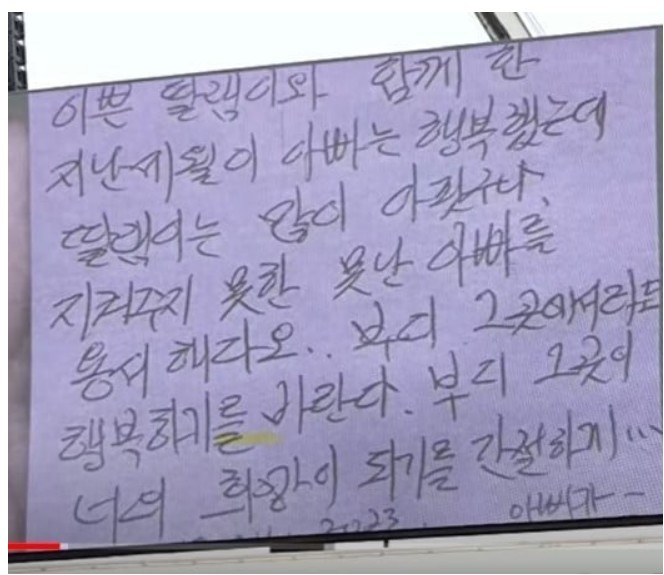 이쁜 딸램이와 함께 한
지난세월이 아빠는 행복했는데
딸램이는 많이 아팟구나.
지켜주지 못한 못난 아빠를
용서 해다오.. 부디 그곳에서라도
행복하기를 바란다. 부디 그곳이
너의 희망이 되기를 간절하게...
2023. 아빠가-